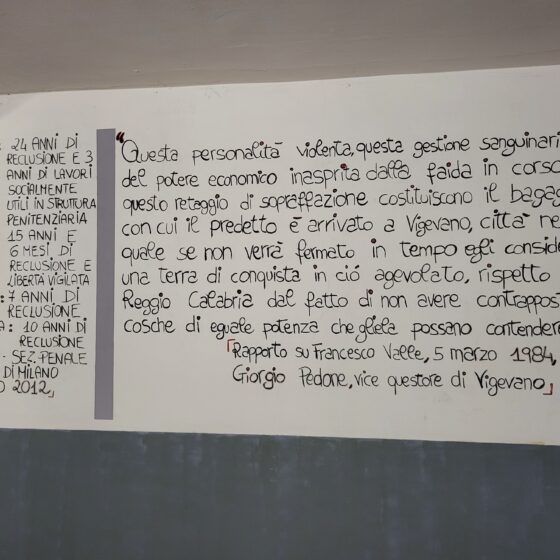 : 24 ANNI DI
RECLUSIONE E 3
ANNI DI LAVORI
SOCIALMENTE
UTILI IN STRUTTURA
PENITENZIARIA
15 ANNI E
6 MESI DI
RECLUSIONE E
LIBERTÀ VIGILATA
: 7 ANNI DI
RECLUSIONE
A : 10 ANNI DI
RECLUSIONE
- SEZ. PENALE
DI MILANO
O 2012」
"Questa personalità violenta, questa gestione sanguinari
del potere economico inasprita dalla faida in corso
questo retaggio di sopraffazione costituiscono il bagag
con cui il predetto è arrivato a Vigevano, città ne
quale se non verrà fermato in tempo egli conside
una terra di conquista in ciò agevolato, rispetto
Reggio Calabria dal fatto di non avere contrappos
cosche di eguale potenza che gliela possano contender
「Rapporto su Francesco Valle, 5 marzo 1984,
Giorgio Pedone, vice questore di Vigevano」